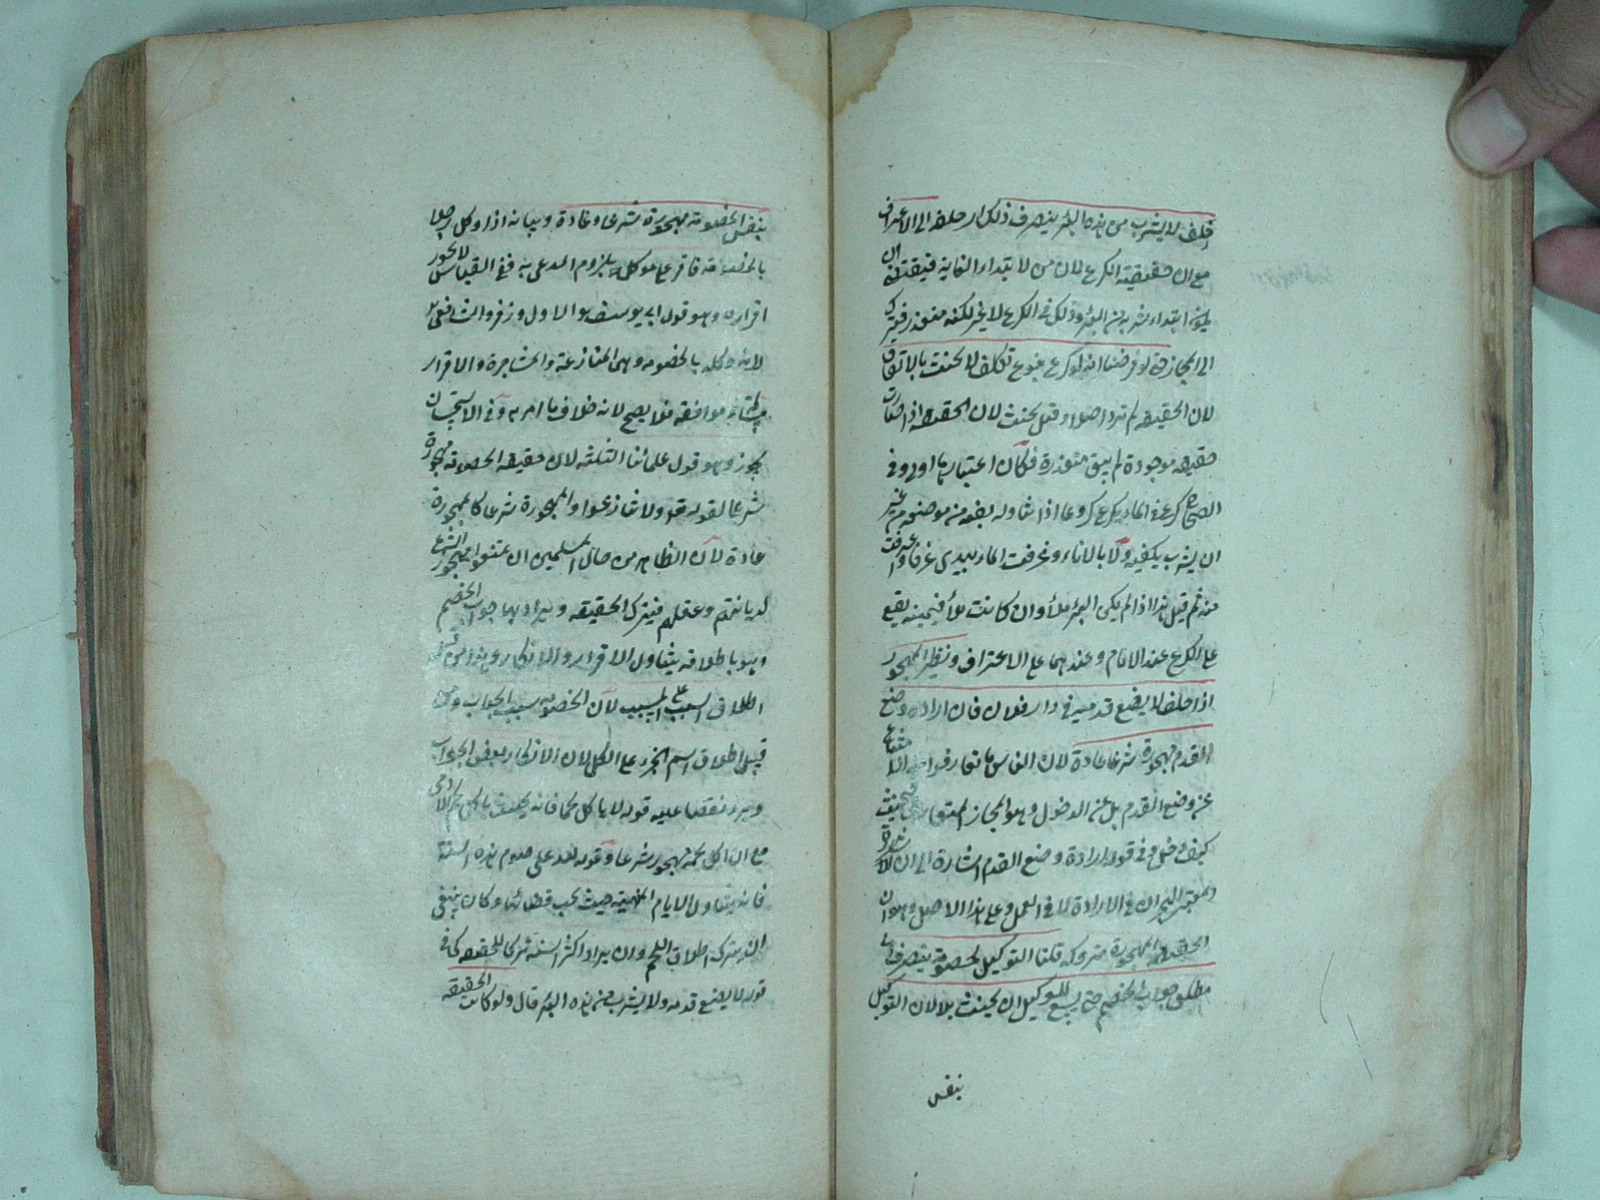 حلف لا يشرب من هذه البئر ينصرف ذلك الى الاغتراف
مع ان حقيقته الكرع لان من لابتداء الغاية فيقتضى ان
يكون ابتداء شربه من البئر وذلك فى الكرع لا غير لكنه متعذر فيترك
الى المجاز حتى لو فرضنا انه لو كرع بنوع تكلف لا يحنث بالاتفاق
لان الحقيقة لم ترد اصلا وقيل يحنث لان الحقيقة اذا صارت
حقيقة موجودة لم يبق متعذرة فكان اعتبارها اولى وفى
الصحاح كرع فى الماء يكرع كروعا اذا تناوله بفيه من موضعه من غير
ان يشرب بكفيه ولا بالاناء وغرفت الماء بيدى غرفا واغترفت
منه ثم قيل هذا اذا لم يكن البئر ملأ وان كانت ملأ فيمينه يقع
على الكرع عند الامام وعندهما على الاغتراف ونظير المهجور
اذا حلف لا يضع قدميه فى دار فلان فان ارادة وضع
القدم مهجورة شرعا عادة لان الناس ما تعارفوا
عن وضع القدم بل عن الدخول وهو المجاز المتعارف فيحنث
كيف دخل وفى قوله ارادة وضع القدم اشارة الى ان
المعتبر الهجران فى الارادة لا فى العمل وعلى هذا الاصل وهو ان
الحقيقة المهجورة متروكة قلنا التوكيل بالخصومة ينصرف الى
مطلق جواب الخصم حتى يسع للوكيل ان يجيب بلا لان التوكيل
بنفس
بنفس الخصومة مهجورة شرعا وعادة وبيانه اذا وكل رجلا
بالخصومة فاقر على موكله بلزوم المدعى به ففى القياس لا يجوز
اقراره وهو قول ابى يوسف الاول وزفر والشافعى
لانه وكله بالخصومة وهى المنازعة والمشاجرة والاقرار
مسالمة وموافقة فلا يصح لانه خلاف ما امر به وفى الاستحسان
يجوز وهو قول علمائنا الثلثة لان حقيقة الخصومة مهجورة
شرعا لقوله تعالى ولا تنازعوا والمهجورة شرعا كالمهجورة
عادة لان الظاهر من حال المسلمين ان يمتنعوا مهجور الشرع
لديانتهم وعقلهم فيترك الحقيقة ويراد بها جواب الخصم
وهو باطلاقه يتناول الاقرار والانكار وهذا من قبيل
اطلاق السبب على المسبب لان الخصومة سبب الجواب ومن
قبيل اطلاق اسم الجزء على الكل لان الانكار بعض الجواب
ويرد نقضا عليه قوله لا ياكل لحما فانه يحنث باكل لحم الادمى
مع ان اكل لحمه مهجور شرعا وقوله لله على صوم هذه السنة
فانه يتناول الايام المنهية حيث يجب قضائها وكان ينبغى
ان يترك اطلاق اللحم وان يراد اكثر السنة تركا للحقيقة كما فى
قوله لا يضع قدمه ولا يشرب من هذه البئر قال ولو كانت الحقيقة